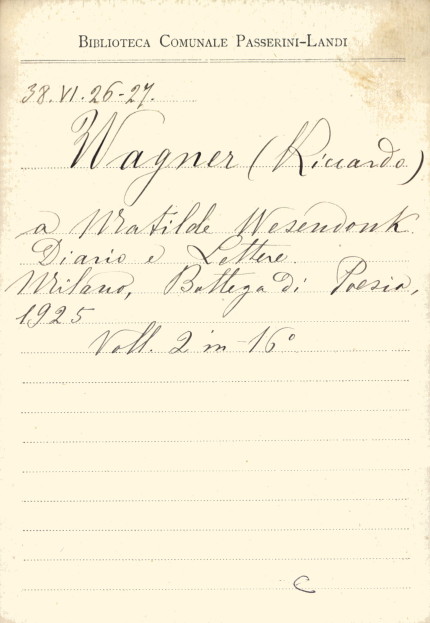 BIBLIOTECA COMUNALE PASSERINI-LANDI
38.VI.26-27.
Wagner (Riccardo)
a Matilde Wesendonk.
Diario e Lettere.
Milano, Bottega di Poesia,
1925
Voll. 2 in-16°
C